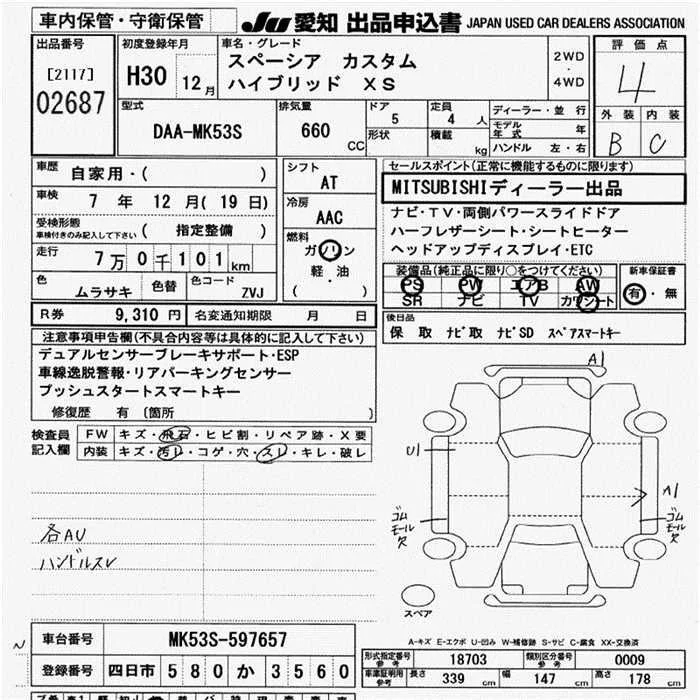 車内保管・守衛保管 JU 愛知 出品申込書 JAPAN USED CAR DEALERS ASSOCIATION
出品番号 初度登録年月 車名・グレード 評価点
[2117] H30 12月 スペーシア カスタム 2WD・4WD 4
02687 ハイブリッド XS
型式 排気量 ドア 定員 ディーラー・並行 外装 内装
DAA-MK53S 660 CC 5 4 人 モデル年式 年 B C
形状 積載 kg ハンドル 左・右
車歴 自家用・( ) シフト セールスポイント(正常に機能するものに限ります)
AT MITSUBISHIディーラー出品
車検 7 年 12 月( 19 日) 冷房
AAC ナビ・TV・両側パワースライドドア
受検形態 ( 指定整備 ) ハーフレザーシート・シートヒーター
車検付きのみ記入して下さい 燃料 ヘッドアップディスプレイ・ETC
走行 7万0千101km ガソリン
軽・油
( )
装備品(純正品に限り○をつけてください) 新車保証書
色 ムラサキ 色替 色コード ZVJ PS PW エアB AW 有・無
SR ナビ TV カワシート
R券 9,310 円 名変通知期限 月 日 後日品
保 取 ナビ取 ナビSD スペアスマートキー
注意事項申告欄(不具合内容等は具体的に記入して下さい)
デュアルセンサーブレーキサポート・ESP
車線逸脱警報・リアパーキングセンサー
プッシュスタートスマートキー
修復歴 有 〔箇所 〕
検査員記入欄 FW キズ・飛石・ヒビ割・リペア跡・X要
内装 キズ・汚レ・コゲ・穴・スレ・キレ・破レ
A1
U1
A1
ゴムモール欠
ゴムモール欠
各AU
ハンドルスレ
スペア
A-キズ E-エクボ U-凹み W-補修跡 S-サビ C-腐食 XX-交換済
車台番号 MK53S-597657
登録番号 四日市 580 か 3560
形式指定番号 参考 18703 類別区分番号 参考 0009
車庫証明用 参考 長さ 339 cm 幅 147 cm 高さ 178 cm